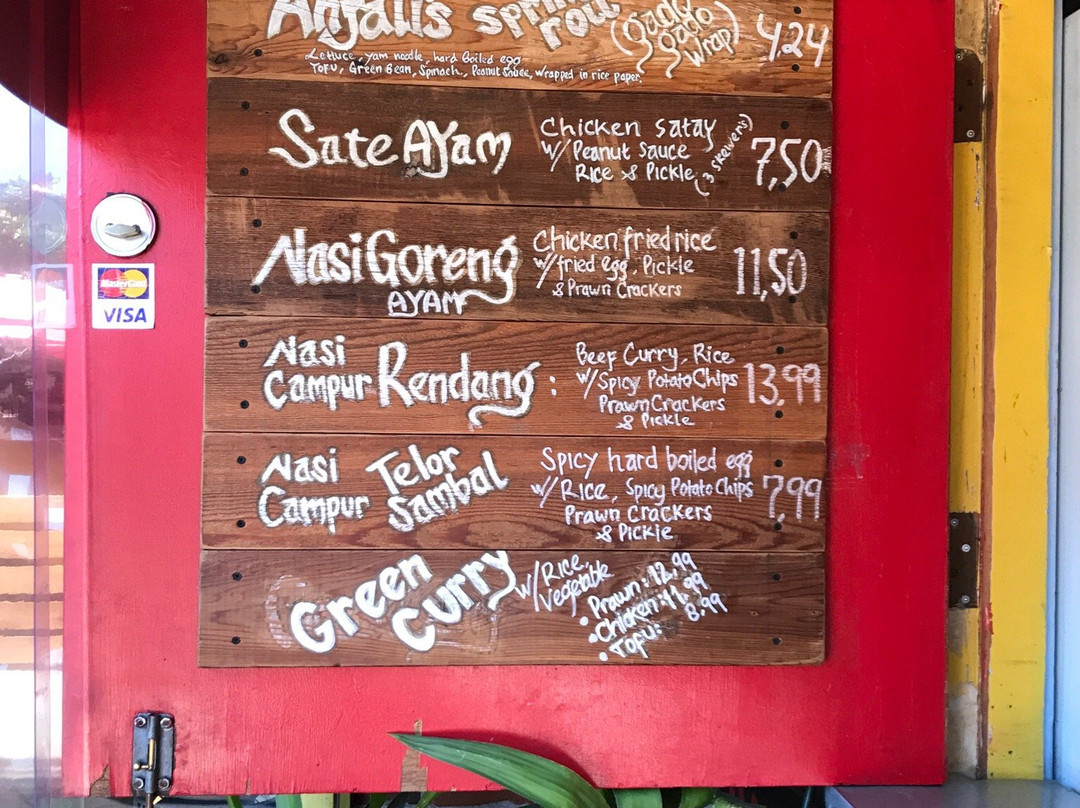 Anjali's spring roll (gado gado wrap) 4,24
Lettuce, yam noodle, hard boiled egg
Tofu, Green Bean, Spinach, Peanut Sauce, wrapped in rice paper.
Sate Ayam
Chicken satay
w/ Peanut sauce
Rice & Pickle (3 skewers)
7,50
Nasi Goreng
AYAM
Chicken fried rice
w/ fried egg, Pickle
& Prawn Crackers
11,50
Nasi
Campur Rendang :
Beef Curry, Rice
w/ Spicy Potato Chips
Prawn Crackers
& Pickle
13,99
Nasi
Campur
Telor
Sambal
Spicy hard boiled egg
w/ Rice, Spicy Potato Chips
Prawn Crackers
& Pickle
7,99
Green
Curry
w/ Rice,
Vegetable
• Prawn: 12,99
• Chicken: 11,99
• Tofu: 8,99
MasterCard
VISA